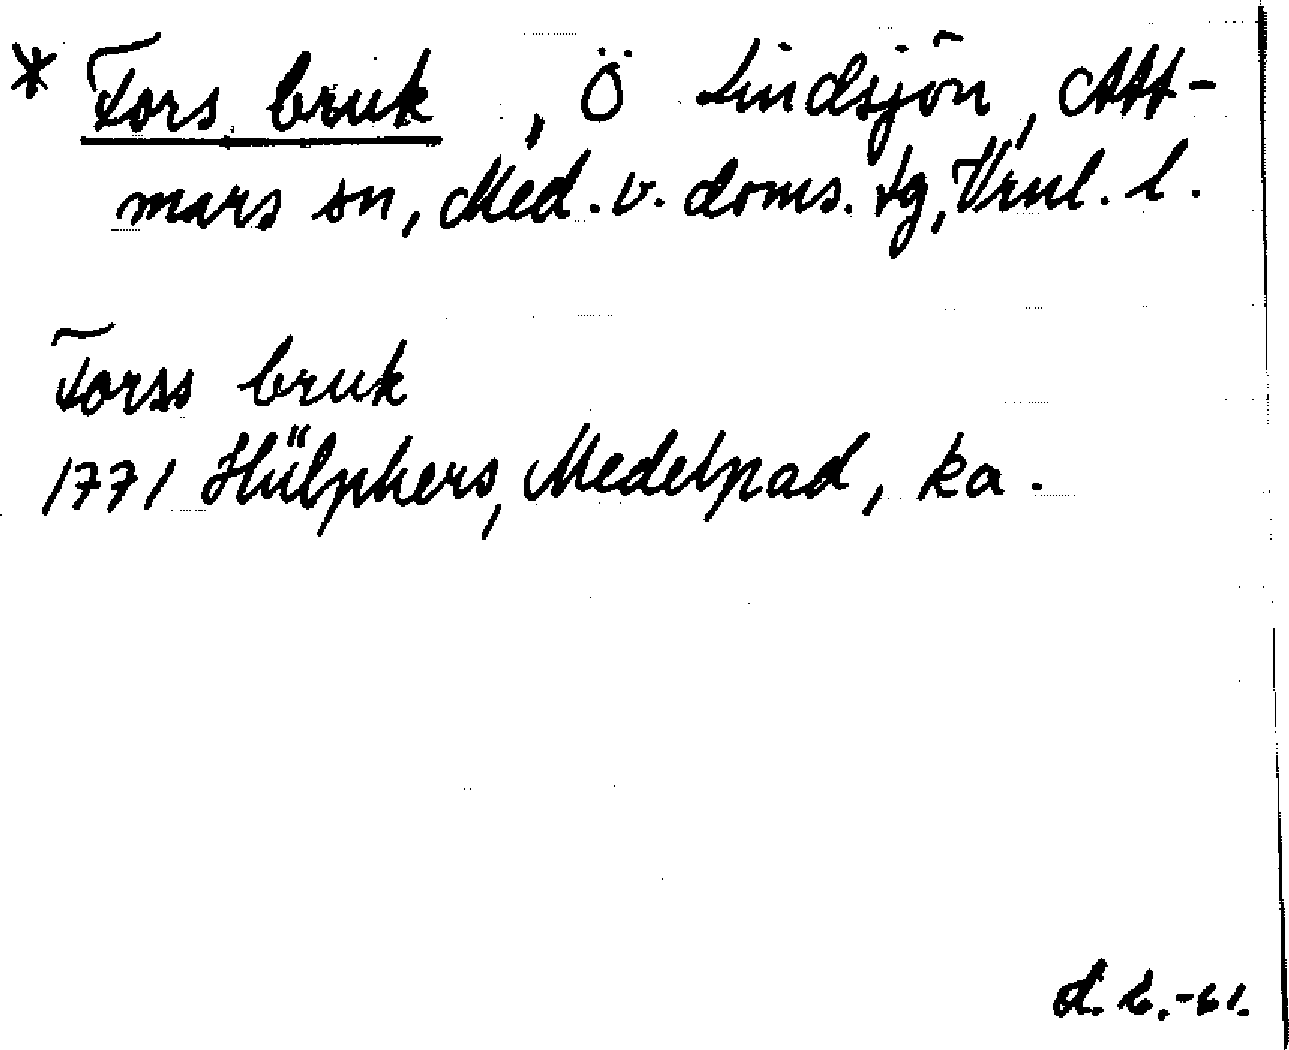 * Fors bruk, Ö Lindsjön, Att-
mars sn, Med. v. doms. tg, Vrnl. l.
Forss bruk
1771 Hülphers, Medelpad, ka.
-61.